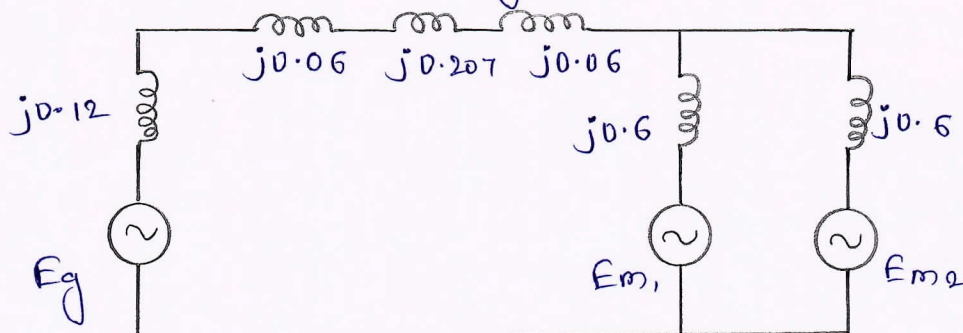 j0.06 j0.207 j0.06
j0.12 j0.6 j0.6
Eg Em1 Em2